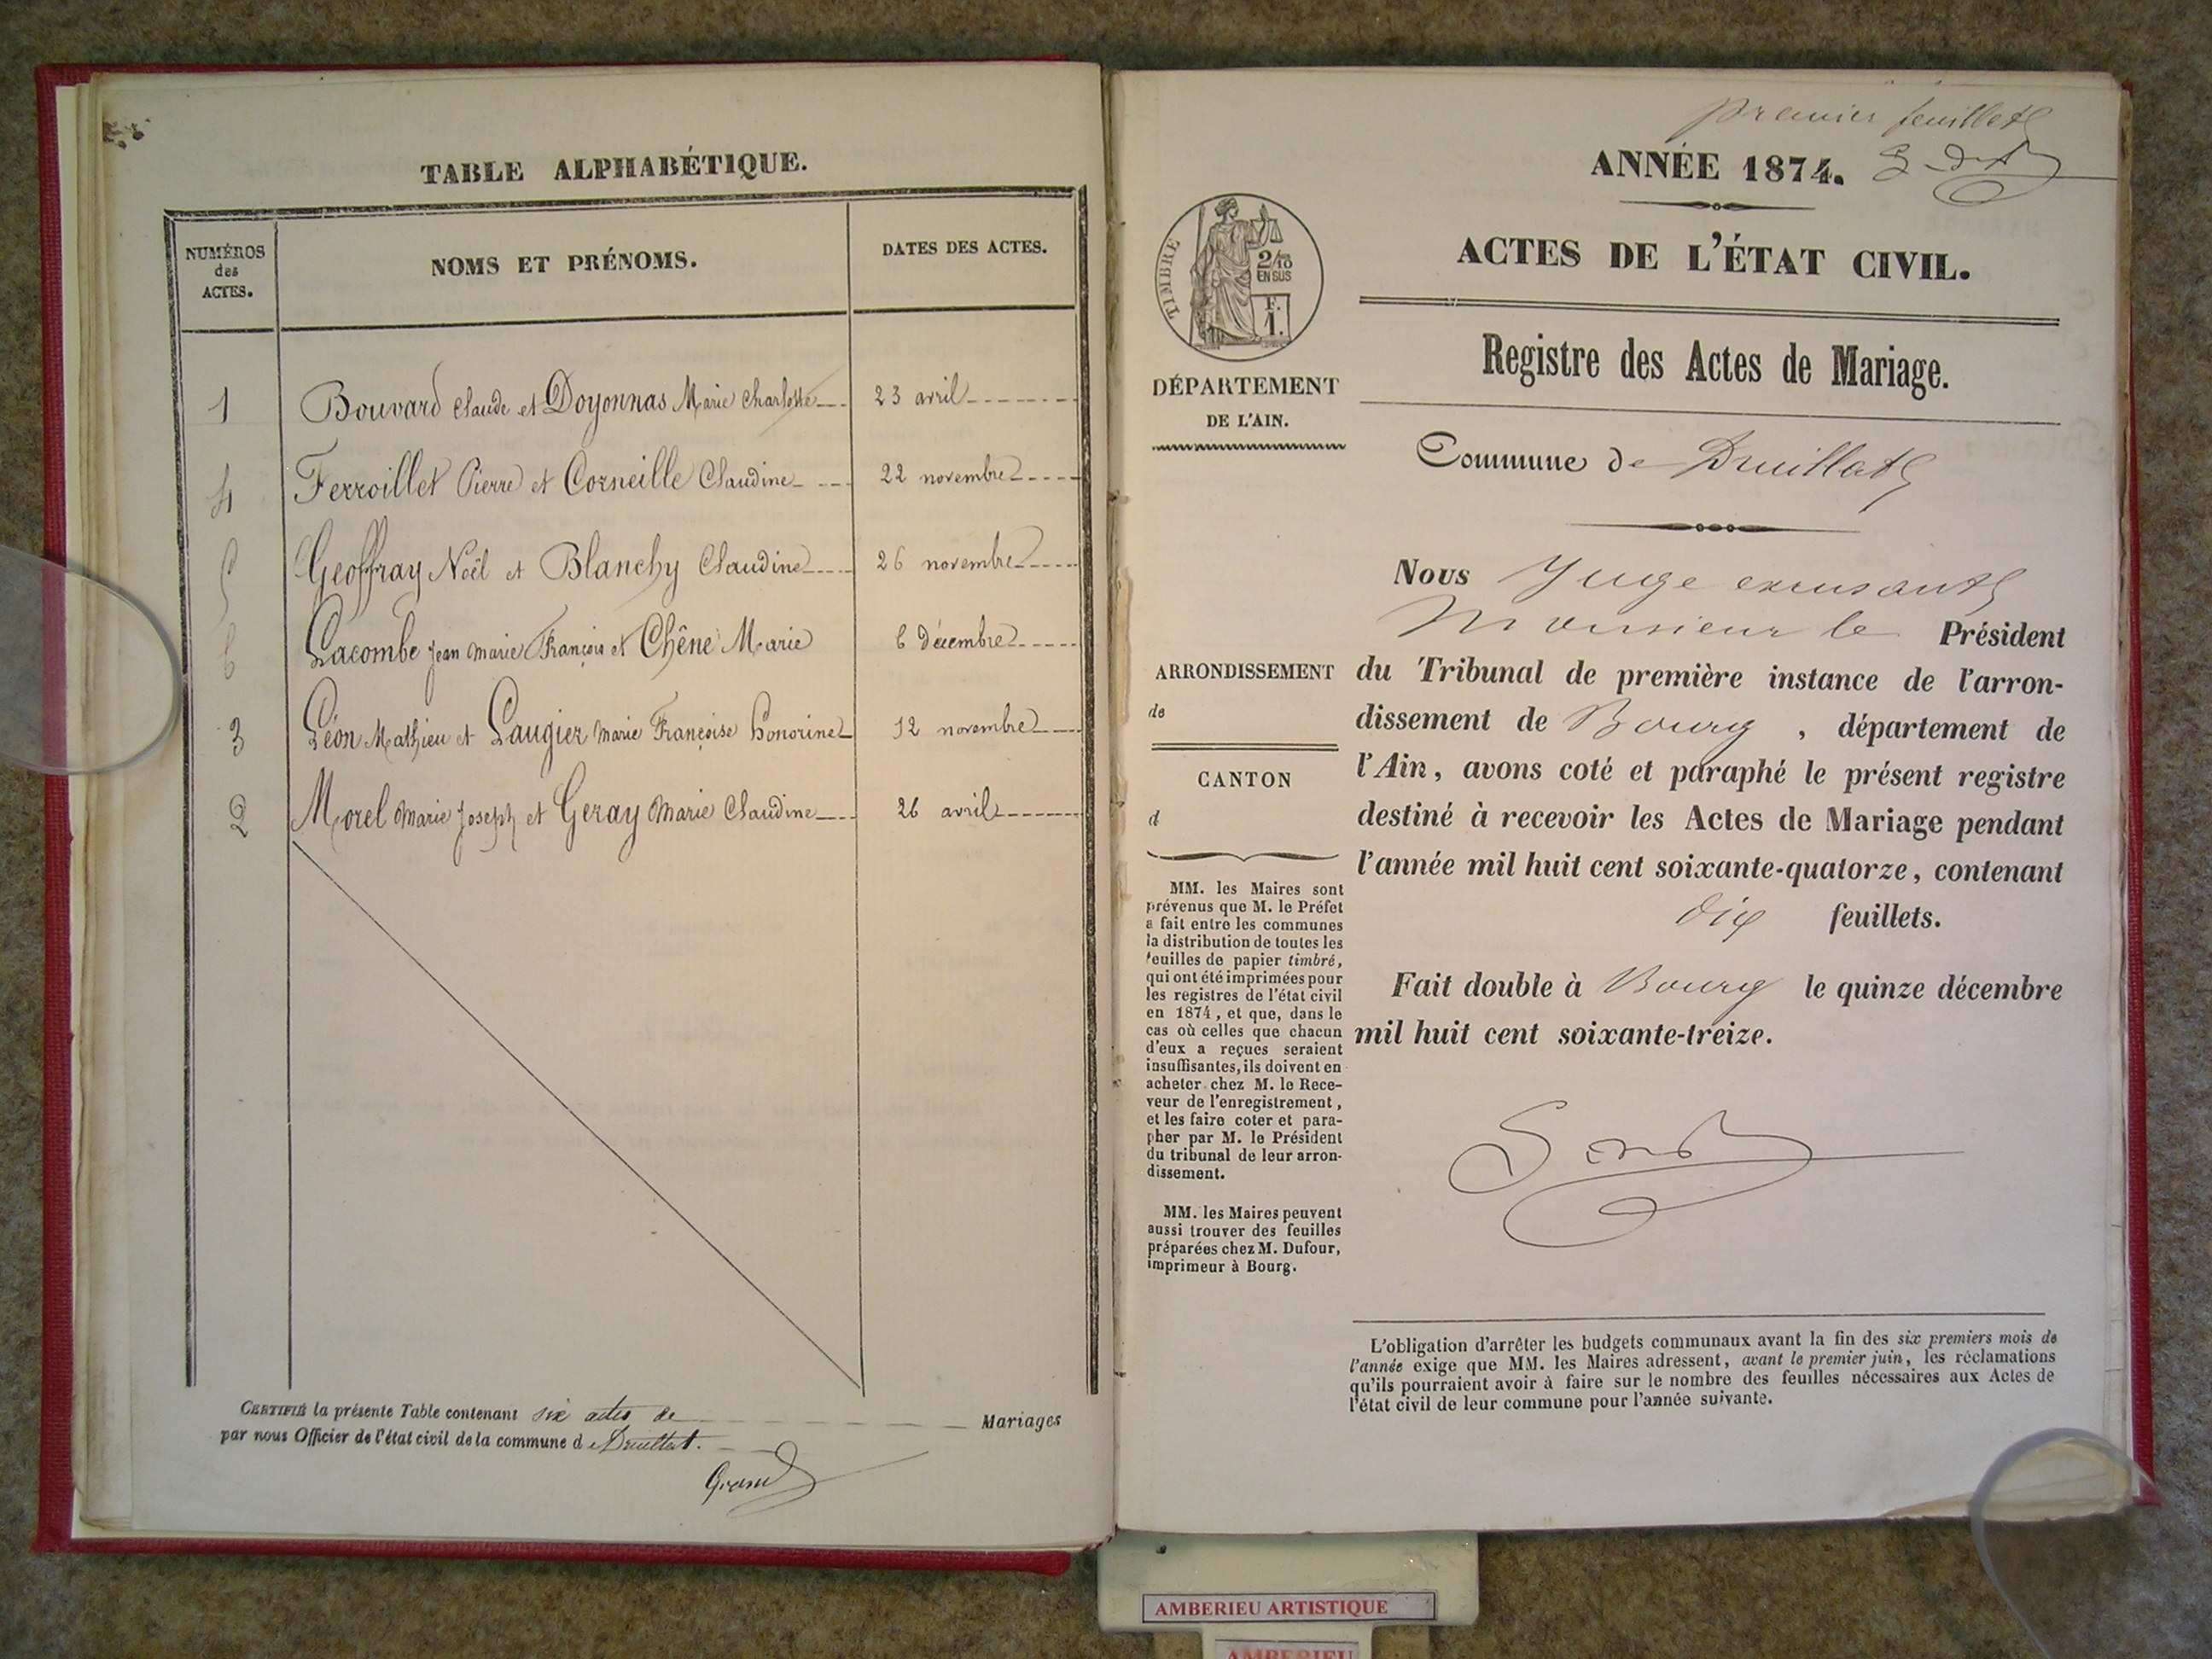 TABLE ALPHABÉTIQUE.
NUMÉROS
des
ACTES.
NOMS ET PRÉNOMS.
DATES DES ACTES.
1 Bouvard Claude et Doyonnas Marie Charlotte 23 avril
4 Ferroillet Pierre et Corneille Claudine 22 novembre
5 Geoffray Noël et Blanchy Claudine 26 novembre
6 Lacombe Jean Marie François et Chêne Marie 6 décembre
3 Léon Mathieu et Laugier Marie Françoise Honorine 12 novembre
2 Morel Marie Joseph et Geray Marie Claudine 26 avril
CERTIFIÉ la présente Table contenant six actes de Mariages
par nous Officier de l'état civil de la commune de Druillat.
premier feuillet
ANNÉE 1874.
ACTES DE L'ÉTAT CIVIL.
Registre des Actes de Mariage.
Commune de Druillat
TIMBRE
2/10
EN SUS
F.
1.
DÉPARTEMENT
DE L'AIN.
ARRONDISSEMENT
de
CANTON
d
MM. les Maires sont
prévenus que M. le Préfet
a fait entre les communes
la distribution de toutes les
feuilles de papier timbré,
qui ont été imprimées pour
les registres de l'état civil
en 1874, et que, dans le
cas où celles que chacun
d'eux a reçues seraient
insuffisantes, ils doivent en
acheter chez M. le Rece-
veur de l'enregistrement,
et les faire coter et para-
pher par M. le Président
du tribunal de leur arron-
dissement.
MM. les Maires peuvent
aussi trouver des feuilles
préparées chez M. Dufour,
imprimeur à Bourg.
Nous Juge excusant
Monsieur le Président
du Tribunal de première instance de l'arron-
dissement de Bourg, département de
l'Ain, avons coté et paraphé le présent registre
destiné à recevoir les Actes de Mariage pendant
l'année mil huit cent soixante-quatorze, contenant
dix feuillets.
Fait double à Bourg le quinze décembre
mil huit cent soixante-treize.
L'obligation d'arrêter les budgets communaux avant la fin des six premiers mois de
l'année exige que MM. les Maires adressent, avant le premier juin, les réclamations
qu'ils pourraient avoir à faire sur le nombre des feuilles nécessaires aux Actes de
l'état civil de leur commune pour l'année suivante.
AMBERIEU ARTISTIQUE
AMBERIEU